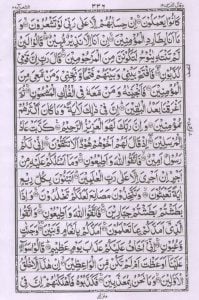 كَانُوْا يَعْمَلُوْنَ اِنْ حِسَابُهُمْ اِلَّا عَلٰى رَبِّيْ لَوْ تَشْعُرُوْنَ وَمَا
اَنَا بِطَارِدِ الْمُؤْمِنِيْنَ اِنْ اَنَا اِلَّا نَذِيْرٌ مُّبِيْنٌ قَالُوْا لَئِنْ
لَّمْ تَنْتَهِ يٰنُوْحُ لَتَكُوْنَنَّ مِنَ الْمَرْجُوْمِيْنَ قَالَ رَبِّ اِنَّ قَوْمِيْ
كَذَّبُوْنِ فَافْتَحْ بَيْنِيْ وَبَيْنَهُمْ فَتْحًا وَّنَجِّنِيْ وَمَنْ مَّعِيَ مِنَ
الْمُؤْمِنِيْنَ فَاَنْجَيْنٰهُ وَمَنْ مَّعَهٗ فِي الْفُلْكِ الْمَشْحُوْنِ ثُمَّ اَغْرَقْنَا
بَعْدُ الْبٰقِيْنَ اِنَّ فِيْ ذٰلِكَ لَاٰيَةً وَمَا كَانَ اَكْثَرُهُمْ
مُّؤْمِنِيْنَ وَاِنَّ رَبَّكَ لَهُوَ الْعَزِيْزُ الرَّحِيْمُ كَذَّبَتْ عَادُ
الْمُرْسَلِيْنَ اِذْ قَالَ لَهُمْ اَخُوْهُمْ هُوْدٌ اَلَا تَتَّقُوْنَ اِنِّيْ لَكُمْ
رَسُوْلٌ اَمِيْنٌ فَاتَّقُوا اللّٰهَ وَاَطِيْعُوْنِ وَمَا اَسْـَٔلُكُمْ عَلَيْهِ مِنْ
اَجْرٍ اِنْ اَجْرِيَ اِلَّا عَلٰى رَبِّ الْعٰلَمِيْنَ اَتَبْنُوْنَ بِكُلِّ رِيْعٍ
اٰيَةً تَعْبَثُوْنَ وَتَتَّخِذُوْنَ مَصَانِعَ لَعَلَّكُمْ تَخْلُدُوْنَ وَاِذَا
بَطَشْتُمْ بَطَشْتُمْ جَبَّارِيْنَ فَاتَّقُوا اللّٰهَ وَاَطِيْعُوْنِ وَاتَّقُوا
الَّذِيْ اَمَدَّكُمْ بِمَا تَعْلَمُوْنَ اَمَدَّكُمْ بِاَنْعَامٍ وَّبَنِيْنَ وَجَنّٰتٍ
وَّعُيُوْنٍ اِنِّيْ اَخَافُ عَلَيْكُمْ عَذَابَ يَوْمٍ عَظِيْمٍ قَالُوْا سَوَآءٌ
عَلَيْنَا اَوَعَظْتَ اَمْ لَمْ تَكُنْ مِّنَ الْوٰعِظِيْنَ اِنْ هٰذَا اِلَّا خُلُقُ
الْاَوَّلِيْنَ وَمَا نَحْنُ بِمُعَذَّبِيْنَ فَكَذَّبُوْهُ فَاَهْلَكْنٰهُمْ اِنَّ فِيْ